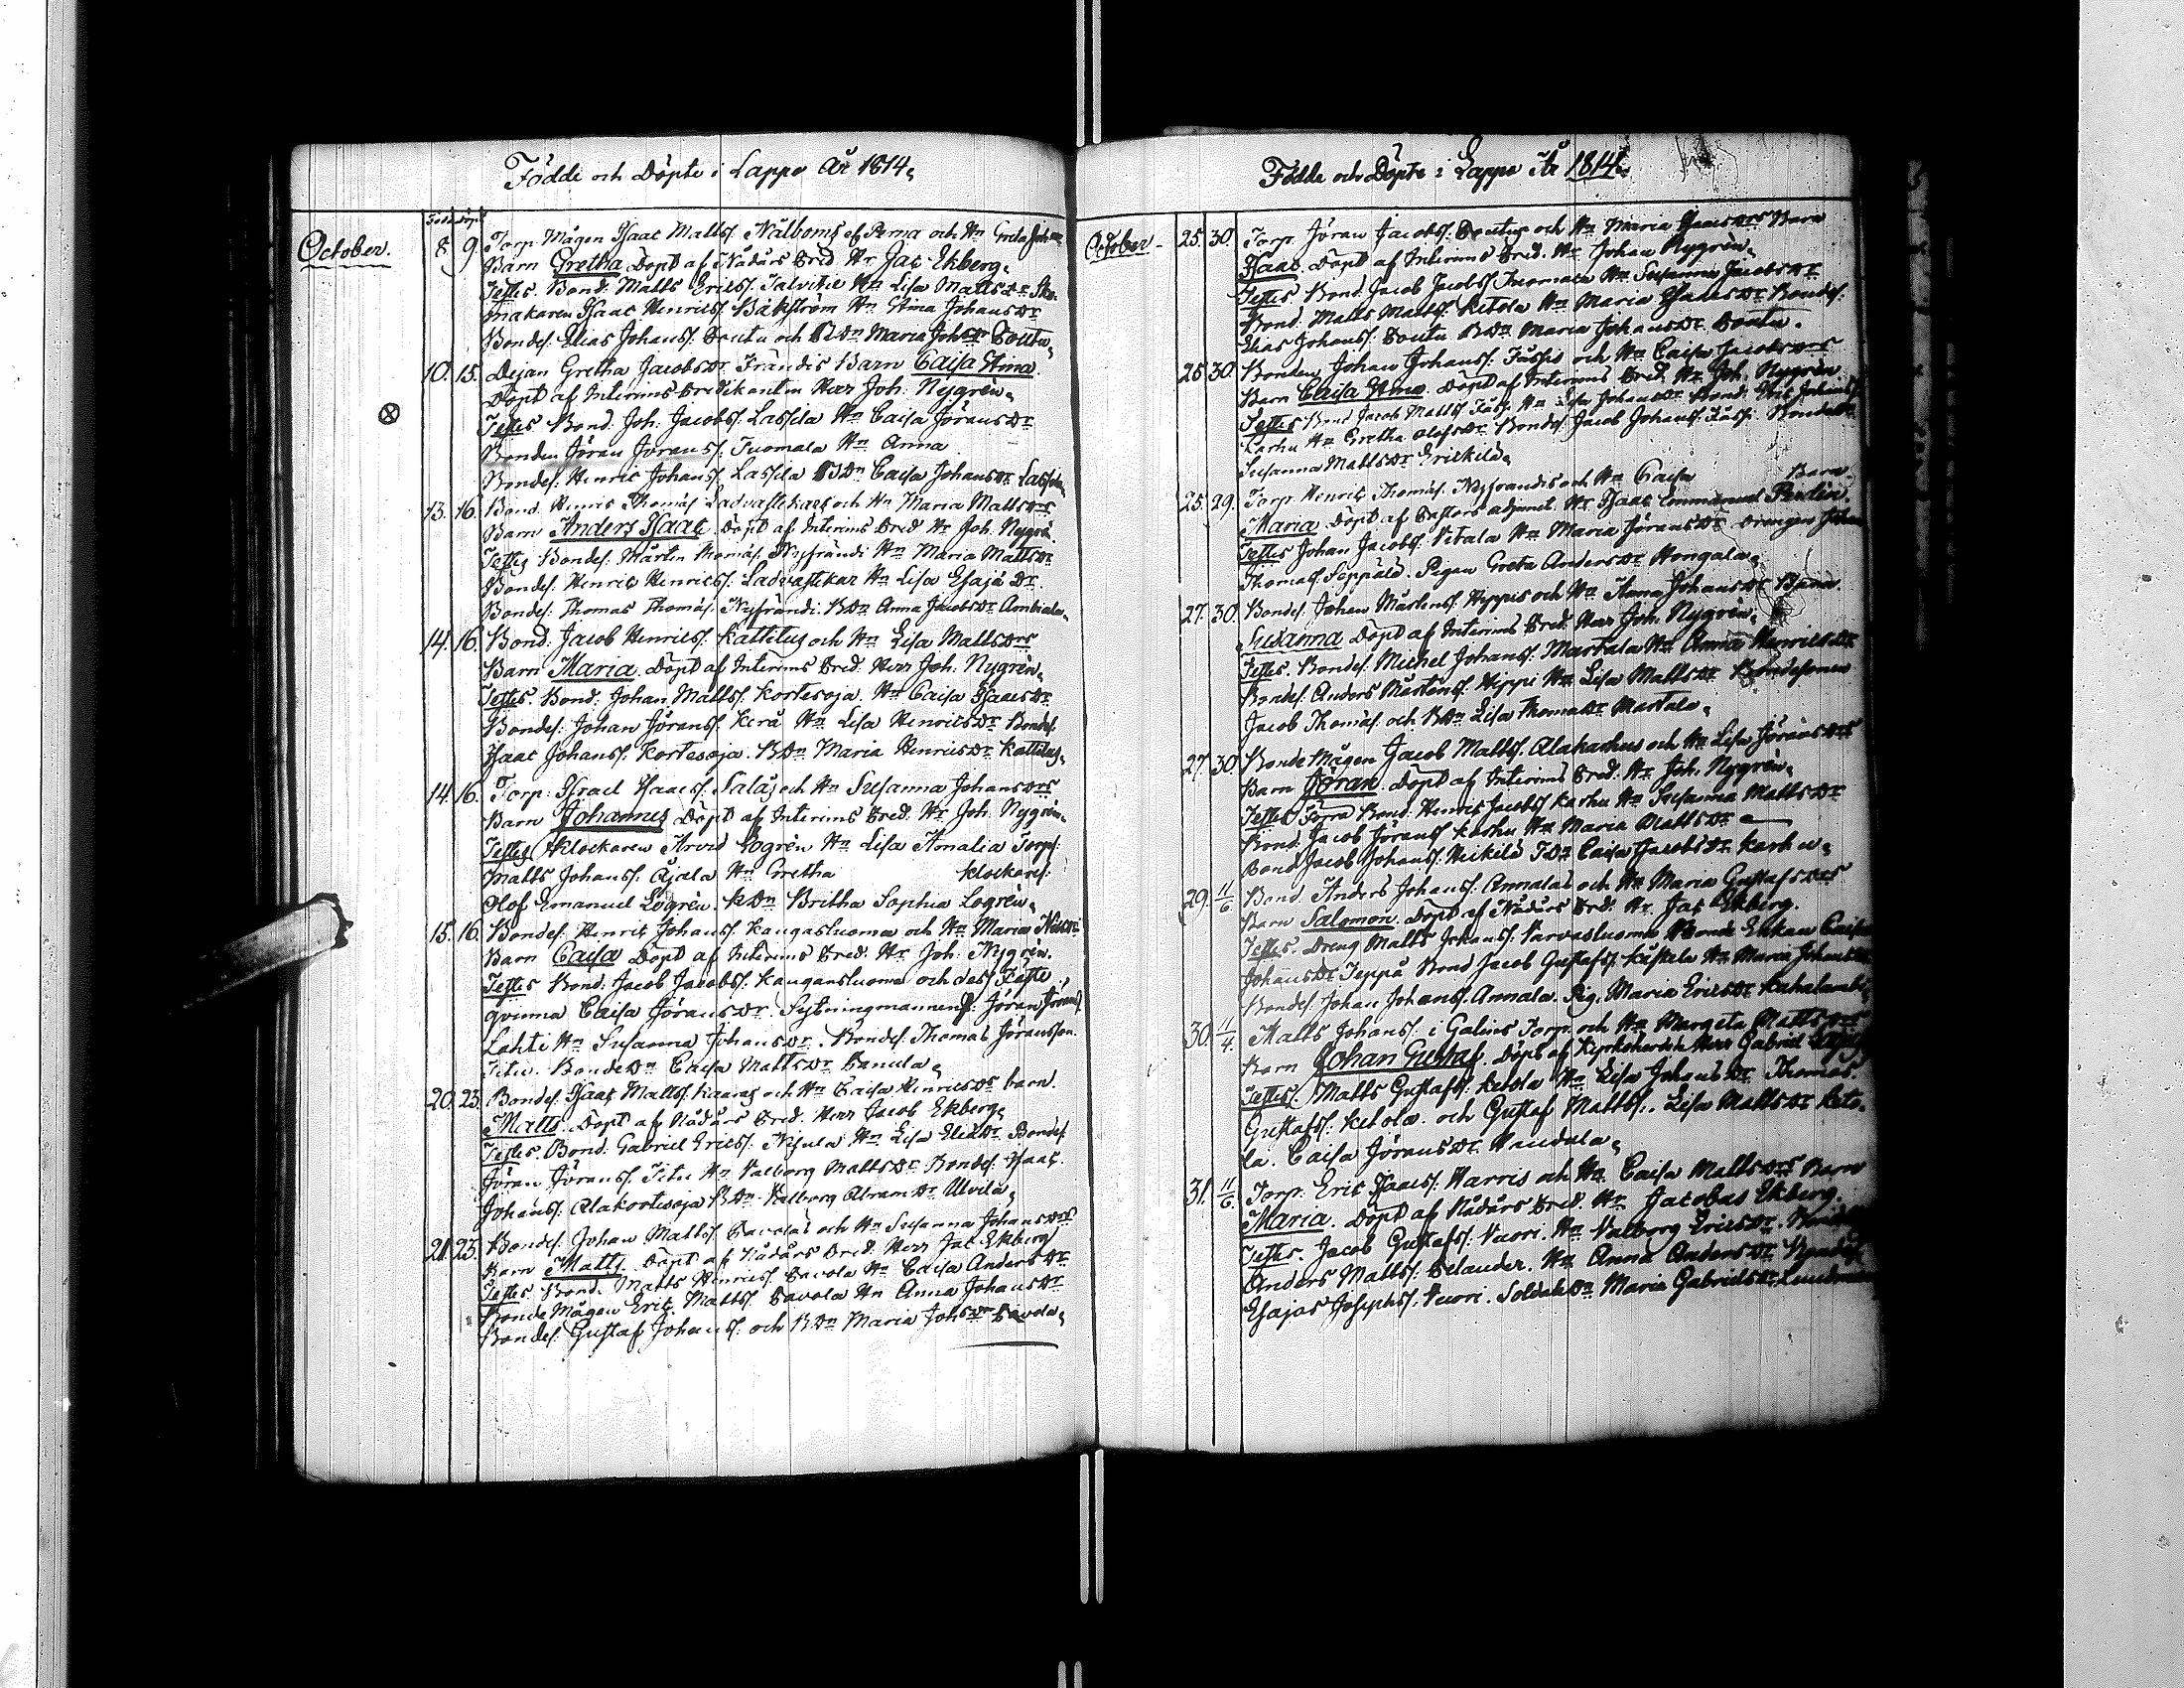 Födde och Döpte i Lappo År 1814.
October.
8. 9. Torp. Mågen Isaac Matts. Nålboms af Perna och Hu Greta Johan
Barn Gretha Döpt af Nådårs Pred. Hr Jac. Ekberg.
Testes. Bond. Matts Erics. Talvitie Hu Lisa Matts Dr Sko-
makaren Isaac Henrics. Bäkström Hu Stina Johans Dr
Bondes. Elias Johans. Poutu och B Dn Maria Joh Dr Poutu.
10. 15. Pigan Gretha Jacobs Dr Frändis Barn Caisa Stina.
Döpt af Interims Predikanten Herr Joh. Nygrén.
Testes Bond. Joh. Jacobs. Lassila Hu Caisa Jörans Dr
Bonden Jöran Jörans. Tuomala Hu Anna
Bondes. Henric Johans. Lassila B Dn Caisa Johans Dr Lassila.
13. 16. Bond. Henric Thomas. Ladvastekars och Hu Maria Matts Drs
Barn Anders Isaac Döpt af Interims Pred. Hr Joh. Nygrén.
Testes Bondes. Mårten Thomas. Nyfrändi Hu Maria Matts Dr
Bondes. Henric Henrics. Ladvastekar Hu Lisa Esajæ Dr.
Bondes. Thomas Thomas. Nyfrändi. B Dn Anna Jacobs Dr Ambiala.
14. 16. Bond. Jacob Henrics. Kattilus och Hu Lisa Matts Drs
Barn Maria. Döpt af Interims Pred. Herr Joh. Nygrén.
Testes. Bond. Johan Matts. Kortesoja. Hu Caisa Isaacs Dr
Bondes. Johan Jörans. Kerä Hu Lisa Henrics Dr Bondes.
Isaac Johans. Kortesoja. B Dn Maria Henrics Dr Kattilus.
14. 16. Torp. Israel Isaacs. Saläs och Hu Susanna Johans Drs
Barn Johannes Döpt af Interims Pred. Hr Joh. Nygrén.
Testes Klockaren Arvid Logrén Hu Lisa Amalia Torp.
Matts Johans. Äjälä Hu Gretha Klockares.
Olof Emanuel Logrén. K Dn Britha Sophia Logrén.
15. 16. Bondes. Henric Johans. Kangasluoma och Hu Maria
Barn Caisa Döpt af Interims Pred. Hr Joh. Nygrén.
Testes Bond. Jacob Jacobs. Kangansluoma och dess Fäste
qvinna Caisa Jörans Dr. Sytningmannen Jöran Jörans
Lahti Hu Susanna Johans Dr. Bondes. Thomas Jöransson.
Titu. Bonde Dn Caisa Matts Dr Panula.
20. 23. Bondes. Isaac Matts. Kaaras och Hu Caisa Henrics Dr barn.
Matts. Döpt af Nådårs Pred. Herr Jacob Ekberg.
Testes. Bond. Gabriel Erics. Nisula Hu Lisa Eliæ Dr Bondes.
Jöran Jörans. Titu Hu Valborg Matts Dr Bondes. Isaac.
Johans. Alakortesoja B Dn Valborg Abram Dr Ulvila.
21. 23. Bondes. Johan Matts. Pavolas och Hu Susanna Johans Drs
Barn Matts. Döpt af Nådårs Pred. Herr Jac Ekberg
Testes. Bond. Matts Henrics. Pavola Hu Caisa Anders Dr
Bonde Mågen Eric Matts. Pavola Hu Anna Johans Dr
Bondes. Gustaf Johans. och B Dn Maria Johs Dr Pavola.
Födde och Döpte i Lappo År 1814.
October
25. 30. Torp. Jöran Jacobs. Poutus och Hu Maria Isaacs Drs Barn
Isaac. Döpt af Interims Pred. Hr Johan Nygrén.
Testes Bond. Jacob Jacobs. Tuomala Hu Susanna Jacobs Dr
Bond. Matts Matts. Ketola Hu Maria Isaacs Dr Bondes.
Elias Johans. Poutu B Dn Maria Johans Dr Poutu.
25 30. Bonden Johan Johans. Jussis och Hu Caisa Jacobs Drs
Barn Caisa Stina. Döpt af Interims Pred. Hr Joh. Nygrén
Testes Bond Jacob Matts. Jussi Hu Lisa Johans Dr Bond. Eric Johans.
Karhu Hu Gretha Olofs Dr Bondes. Jacob Johans. Jussi. Bonde Dn
Susanna Matts Dr Erickilä.
25. 29. Torp. Henric Thomas. Nyfrändis och Hu Caisa Barn
Maria Döpt af Pastors adjunct. Hr Isaac Emmanuel Perlin.
Testes Johan Jacobs. Vitala Hu Maria Jörans Dr Drengen Johan
Thomas. Seppälä. Pigan Greta Anders Dr Hongala.
27. 30. Bondes. Johan Mårtens. Hippis och Hu Anna Johans Dr Barn.
Susanna Döpt af Interims Pred. Herr Joh. Nygrén.
Testes. Bondes. Michel Johans. Martala Hu Anna Henrics Dr
Bondes. Anders Mårtens. Hippi Hu Lisa Matts Dr Bondesonen
Jacob Thomas. och B Dn Lisa Thomæ Dr Martala.
27. 30. Bonde Mågen Jacob Matts. Alakarhus och Hu Lisa Jörans Drs
Barn Jöran. Döpt af Interims Pred. Hr Joh. Nygrén.
Testes Förra Bond. Henric Jacobs. Karhu Hu Susanna Matts Dr
Bond. Jacob Jörans. Karhu Hu Maria Matts Dr
Bond Jacob Johans. Heikilä T Dn Caisa Jacobs Dr Karhu.
29. 11/6. Bond. Anders Johans. Annalas och Hu Maria Gustafs Drs
Barn Salomon. Döpt af Nådårs Pred. Hr Jac Ekberg.
Testes. Dreng Matts Johans. Varvasluoma Bonde Enkan Caisa
Johans Dr. Seppä Bond Jacob Gustafs. Hu Maria Johans Dr
Bondes. Johan Johans. Annala. Pig. Maria Erics Dr
30. 11/4. Matts Johans. i Galins Torp. och Hu Margeta Matts Drs
Barn Johan Gustaf. Döpt af Kyrkoherden Herr Gabriel
Testes. Matts Gustafs. Ketola Hu Lisa Johans Dr Thomas
Gustafs. Ketola. och Gustaf Matts. Lisa Matts Dr Keto-
la. Caisa Jörans Dr Handula.
31. 11/6. Torp. Eric Isaacs. Harris och Hu Caisa Matts Drs Barn
Maria. Döpt af Nådårs Pred. Hr Jacobas Ekberg.
Testes. Jacob Gustafs. Vuori. Hu Valborg Erics Dr.
Anders Matts. Pelander. Hu Anna Anders Dr Bondes.
Esajas Josephs. Vuori. Soldate Dn Maria Gabriels Dr.